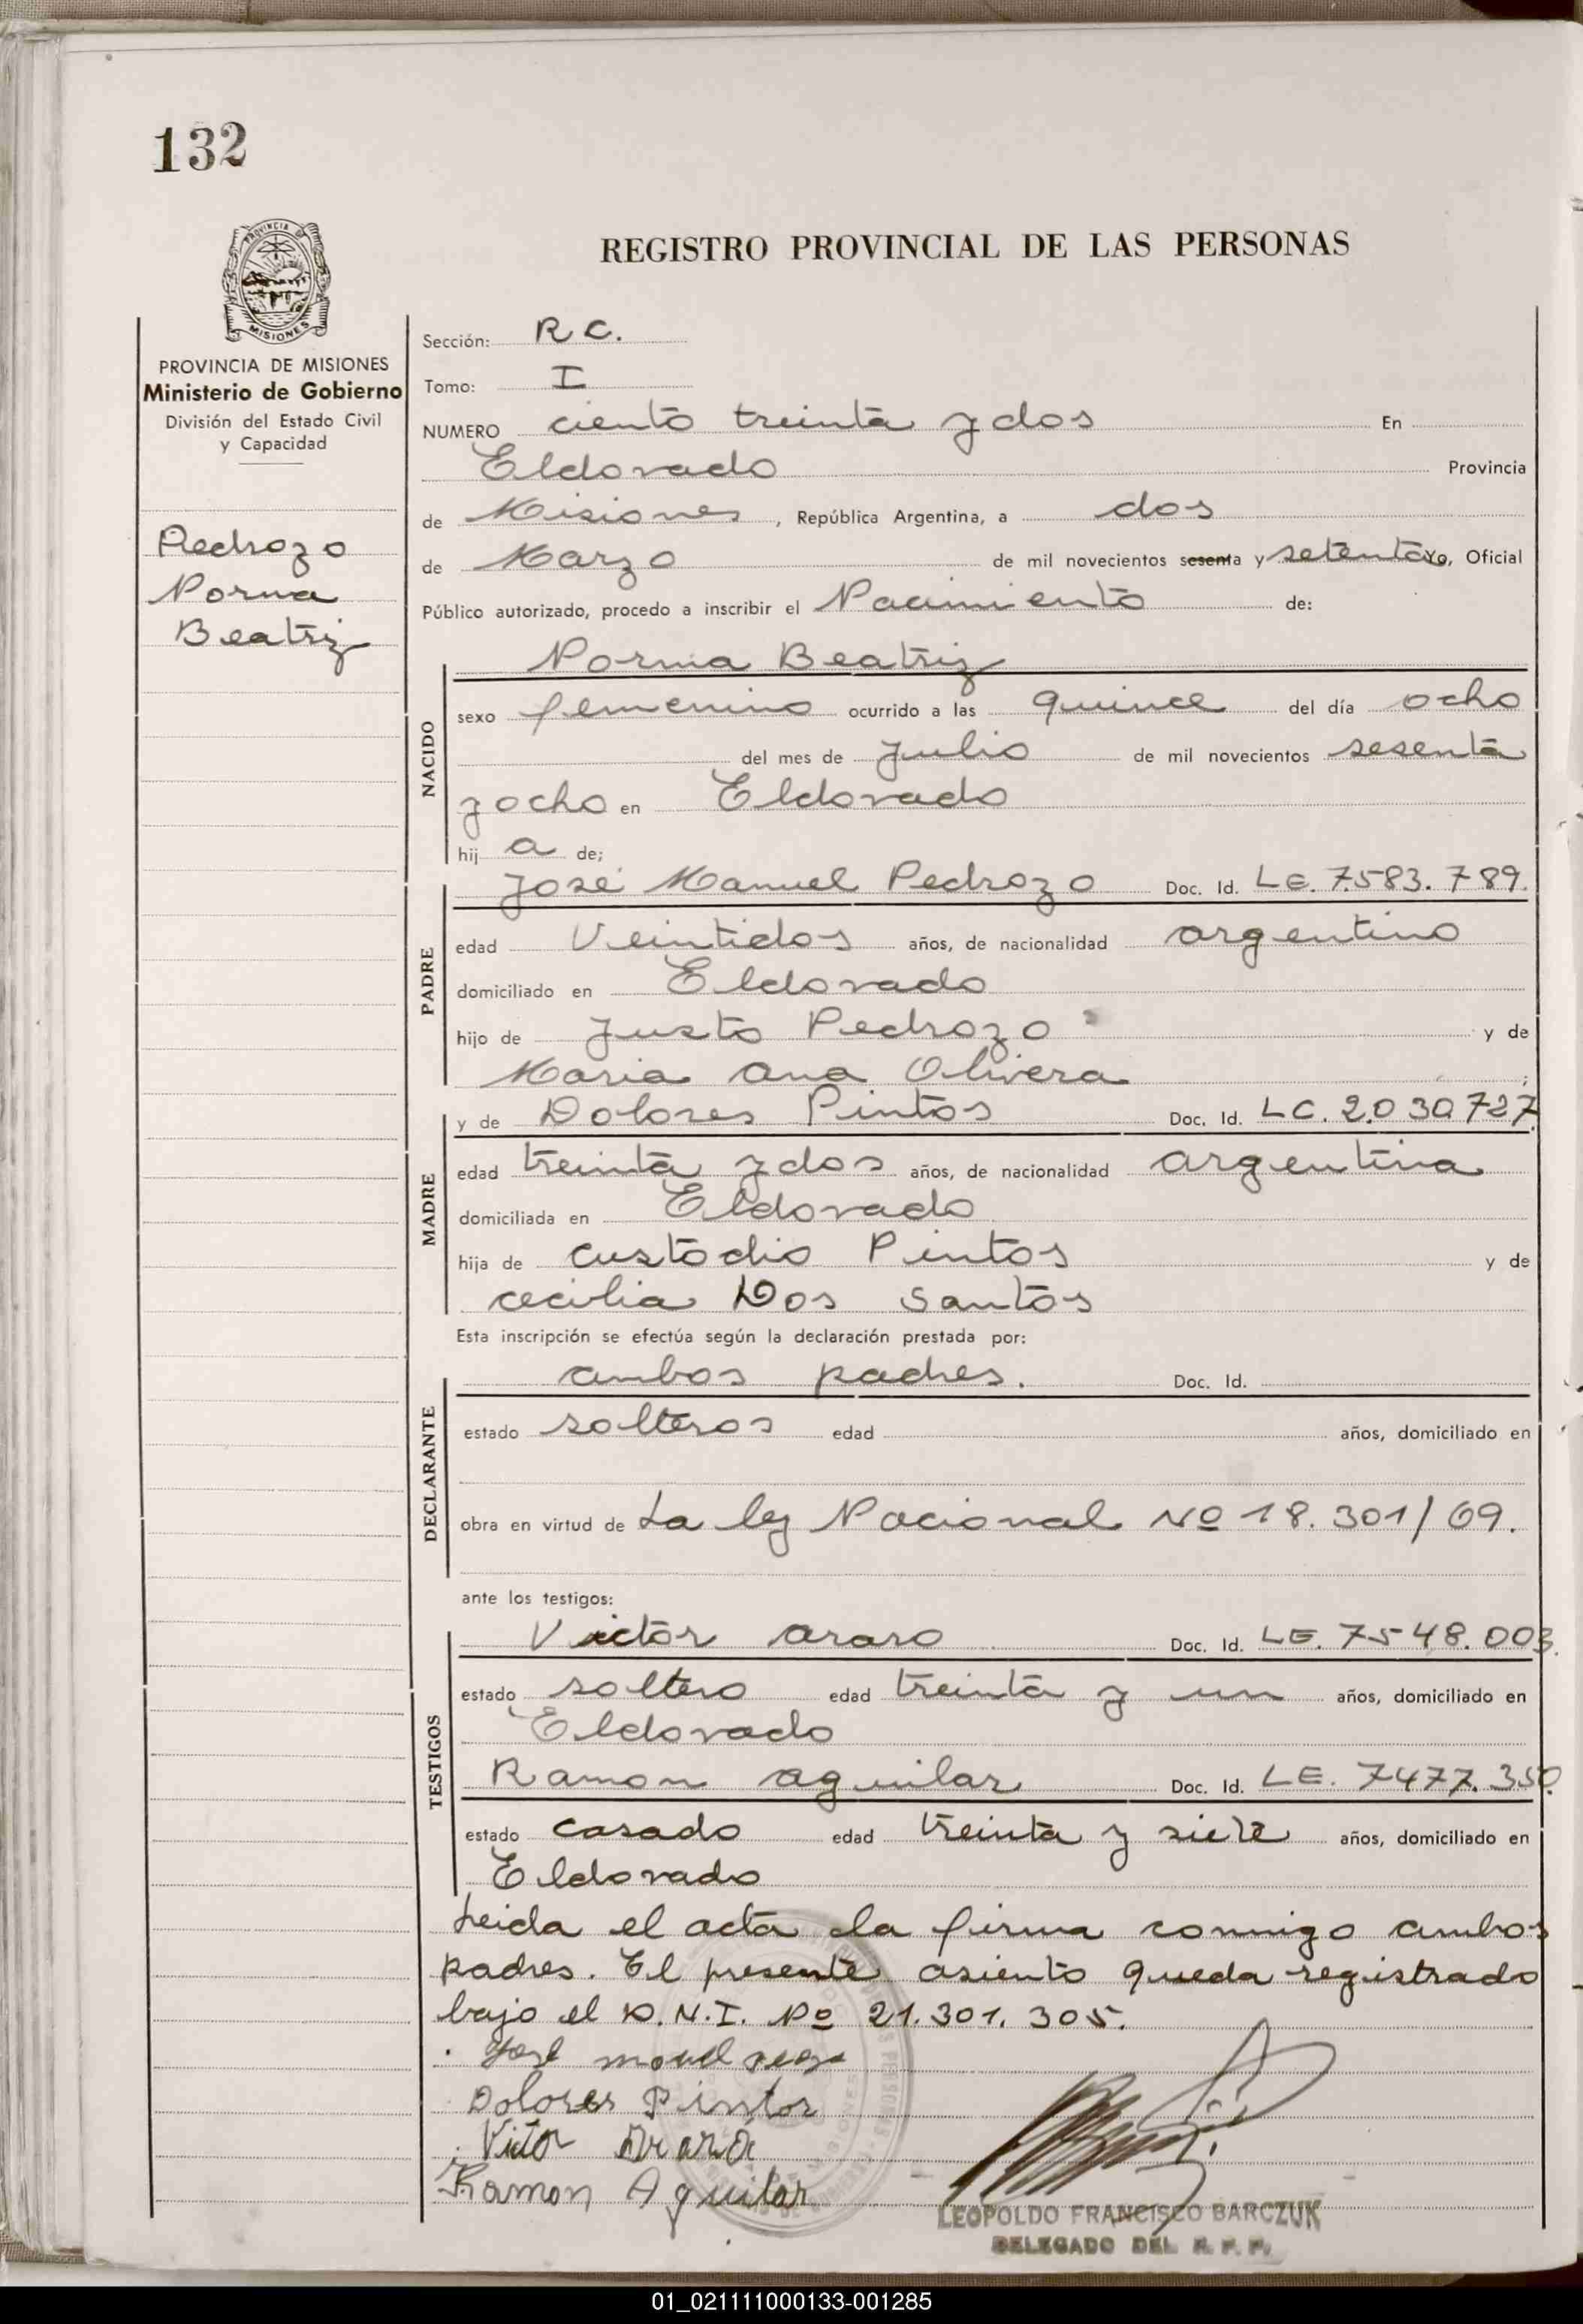 132
PROVINCIA DE
MISIONES
REGISTRO PROVINCIAL DE LAS PERSONAS
PROVINCIA DE MISIONES
Ministerio de Gobierno
División del Estado Civil
y Capacidad
Pedrozo
Norma
Beatriz
Sección: R C.
Tomo: I
NUMERO ciento treinta y dos En
Eldorado Provincia
de Misiones, República Argentina, a dos
de Marzo de mil novecientos sesenta y setenta Yo, Oficial
Público autorizado, procedo a inscribir el Nacimiento de:
NACIDO
Norma Beatriz
sexo femenino ocurrido a las quince del día ocho
del mes de Julio de mil novecientos sesenta
y ocho en Eldorado
hij a de;
PADRE
José Manuel Pedrozo Doc. Id. LE. 7.583.789.
edad Veintidos años, de nacionalidad argentino
domiciliado en Eldorado
hijo de Justo Pedrozo y de
Maria Ana Olivera ;
MADRE
y de Dolores Pintos Doc. Id. LC. 2.030.727.
edad treinta y dos años, de nacionalidad argentina
domiciliada en Eldorado
hija de Custodio Pintos y de
Cecilia Dos Santos
Esta inscripción se efectúa según la declaración prestada por:
DECLARANTE
ambos padres. Doc. Id.
estado solteros edad años, domiciliado en
obra en virtud de La ley Nacional Nº 18.301/69.
ante los testigos:
TESTIGOS
Victor araro Doc. Id. LE. 7548.003.
estado soltero edad treinta y un años, domiciliado en
Eldorado
Ramon aguilar Doc. Id. LE. 7477.350.
estado casado edad treinta y siete años, domiciliado en
Eldorado
Leida el acta la firma conmigo ambos
padres. El presente asiento queda registrado
bajo el D.N.I. Nº 21.301.305.
Dolores Pintos
Victor
Ramon Aguilar
LEOPOLDO FRANCISCO BARCZUK
DELEGADO DEL R. P. P.
01_021111000133-001285